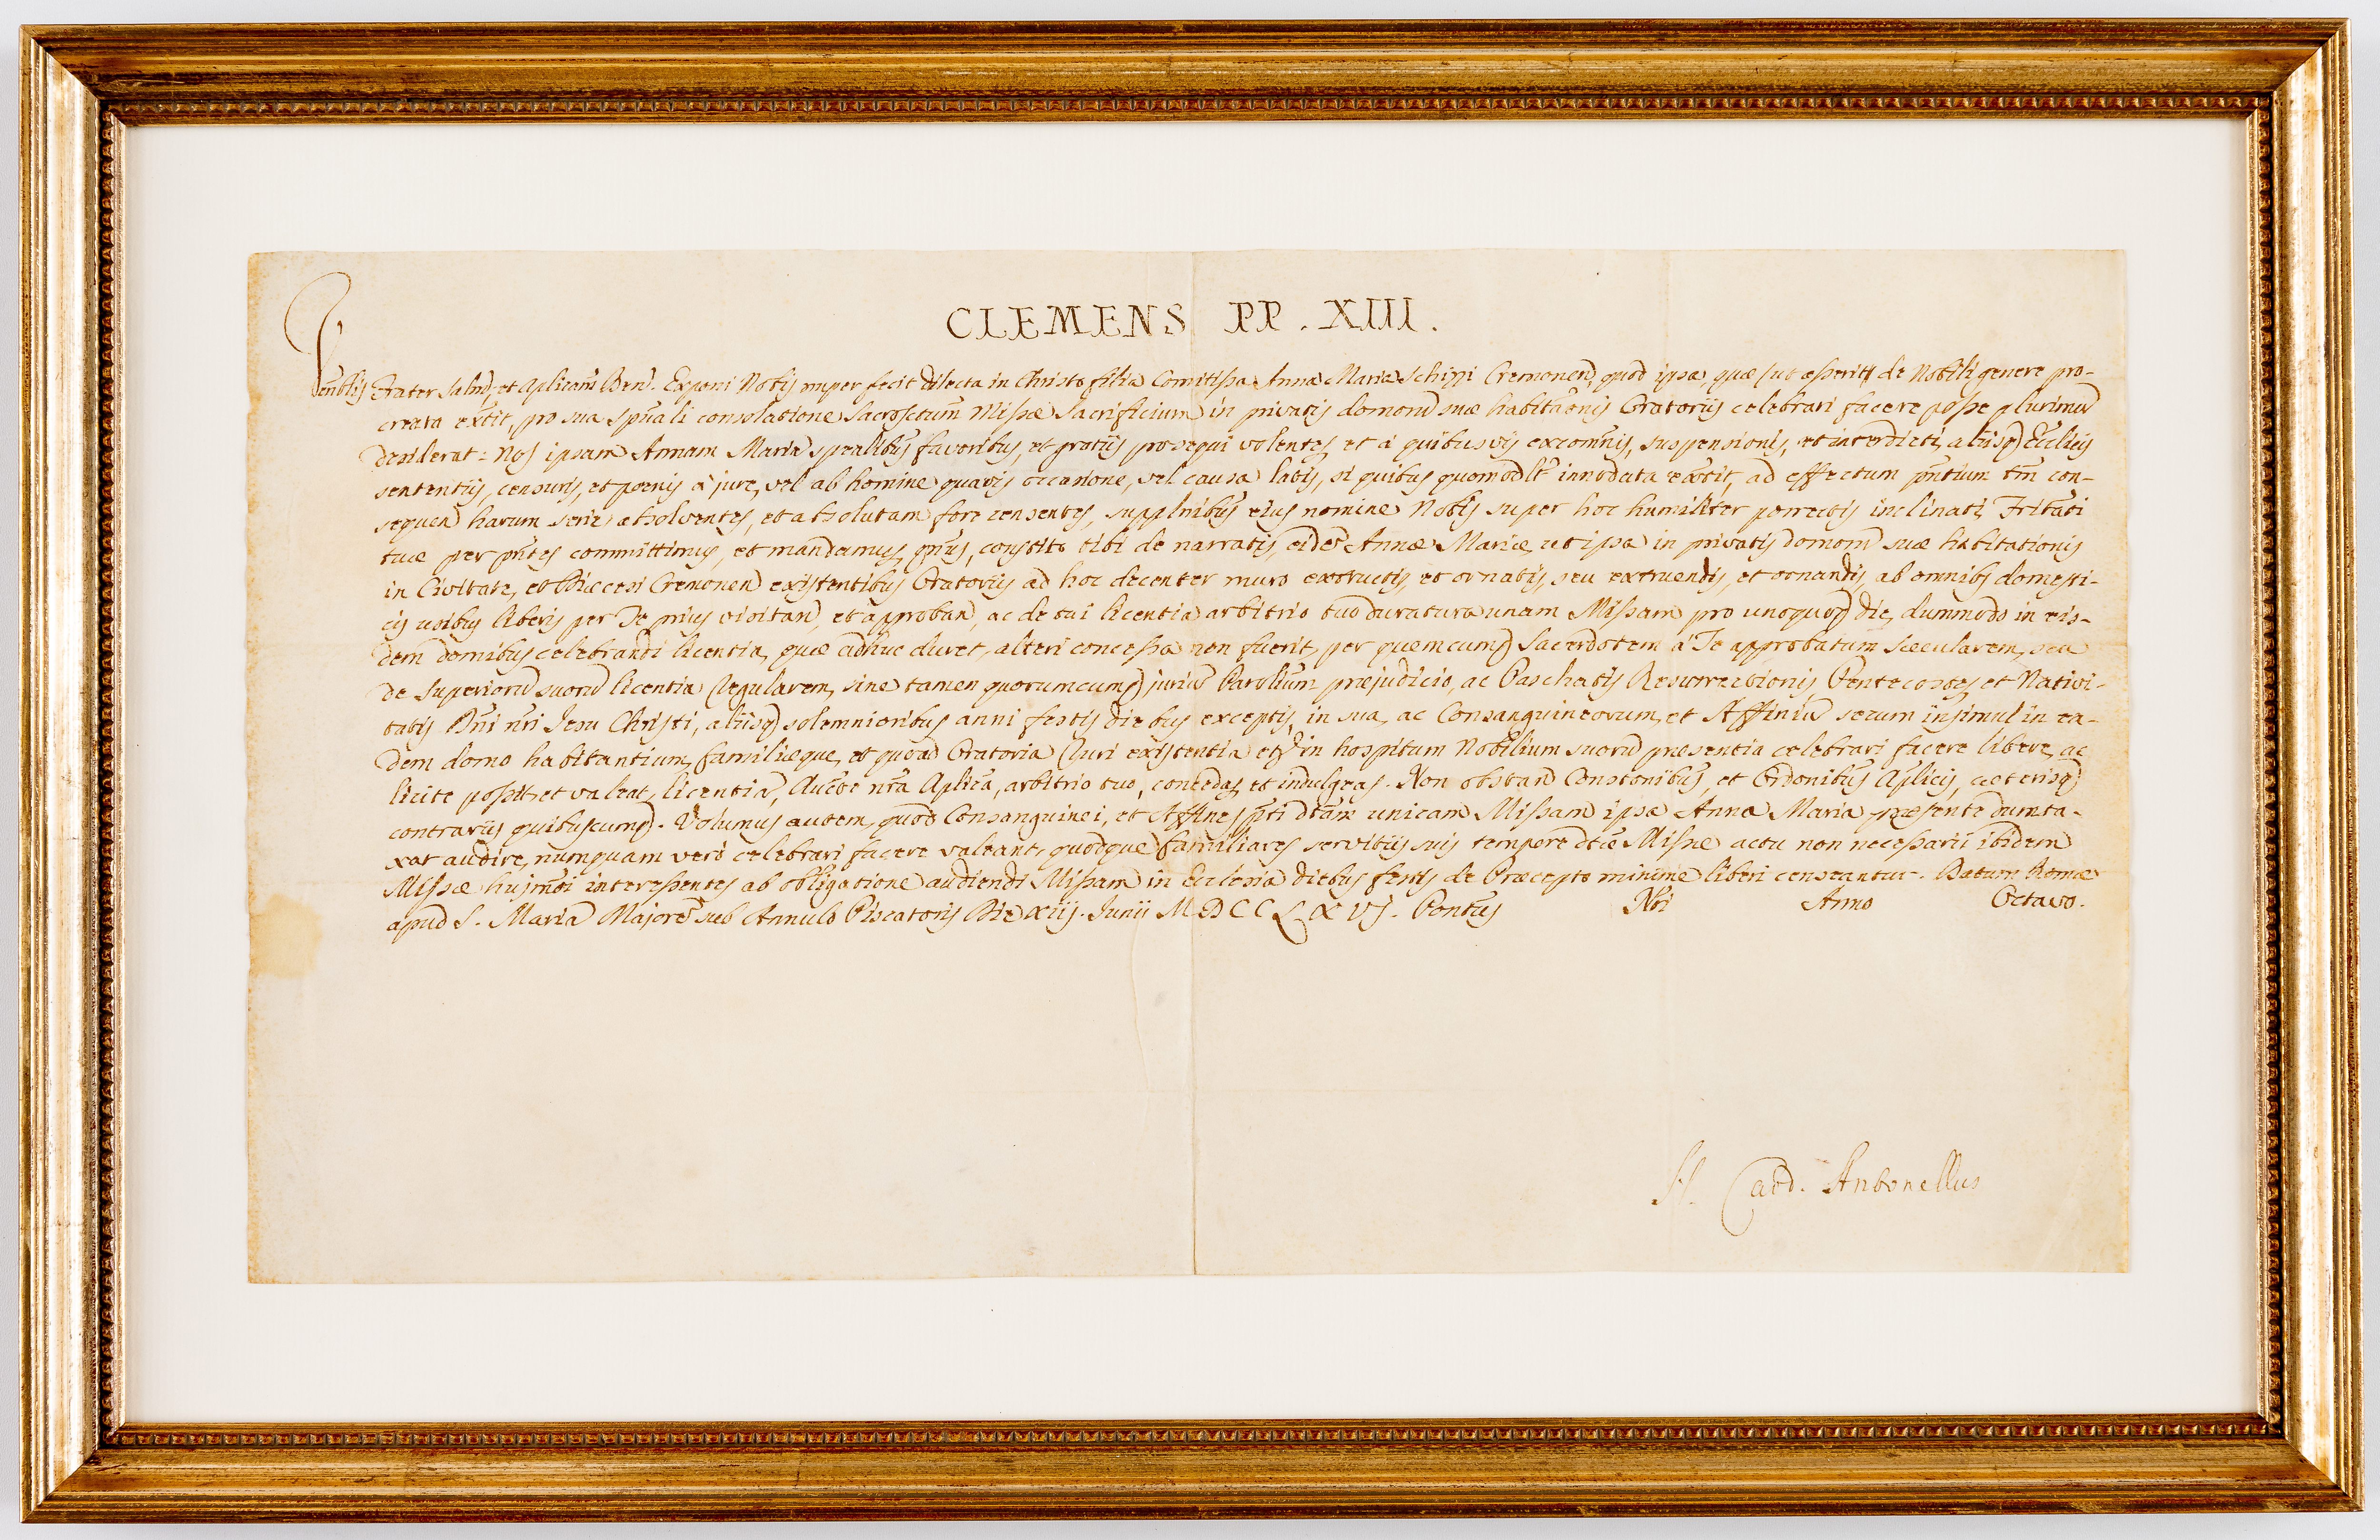 CLEMENS PP. XIII.
Venblis Frater Salud, et Aplicam Ben. Exponi Nobis nuper fecit dilecta in Christo filia Comitissa Anna Maria Schippi Cremonen, quod ipsa, quæ (ut asserit) de Nobili genere pro-
creata extit, pro sua spuali consolatione Sacrosctum Missæ Sacrificium in privatis domorum suæ habitaonis Oratoriis celebrari facere posse plurimum
desiderat: Nos ipsam Annam Mariam spealibus favoribus, et gratiis prosequi volentes, et a quibusvis excomnis, suspensionis, et interdicti, aliisq Ecclicis
sententiis, censuris, et poenis a jure, vel ab homine quavis occasione, vel causa latis, si quibus quomodlt innodata extit, ad effectum pntium tm con-
sequen harum serie absolventes, et absolutam fore censentes, supplnibus ejus nomine Nobis super hoc humiliter porrectis inclinati, Fritati
tuæ per pntes committimus, et mandamus, qnus, constito tibi de narratis, eidem Annæ Mariæ, ut ipsa in privatis domorum suæ habitationis
in Civitate, et Diæcesi Cremonen existentibus Oratoriis ad hoc decenter muro extructis, et ornatis, seu extruendis, et ornandis, ab omnibus domesti-
cis usibus liberis per Te prius visitan, et approban, ac de tui licentia arbitrio tuo duratura unam Missam pro unoquoq die, dummodo in eis-
dem domibus celebrandi licentia, quæ adhuc duret, alteri concessa non fuerit, per quemcumq Sacerdotem a Te approbatum Sæcularem, seu
de Superiorum suorum licentia Regularem, sine tamen quorumcumq jurium Parolium præjudicio, ac Paschatis Resurrectionis, Pentecostes, et Nativi-
tatis Dni nri Jesu Christi, aliisq solemnioribus anni festis diebus exceptis, in sua, ac Consanguineorum, et Affinium secum insimul in ea-
dem domo habitantium, familiæque, et quoad Oratoria Ruri existentia et in hospitum Nobilium suorum præsentia celebrari facere libere, ac
licite possit, et valeat, licentiam, Aucte nra Aplica, arbitrio tuo, concedas, et indulgeas. Non obstan Constonibus, et Ordonibus Aplicis, cæterisq
contrariis quibuscumq. Volumus autem, quod Consanguinei, et Affines pti dtam unicam Missam ipsa Anna Maria præsente dumta-
xat audire, numquam vero celebrari facere valeant, quodque familiares servitiis suis tempore dtæ Missæ actu non necessarii ibidem
Missæ hujmoi interessentes ab obligatione audiendi Missam in Ecclesia diebus festis de Præcepto minime liberi censeantur. Datum Romæ
apud S. Mariam Majorem sub Annulo Piscatoris Die xiij. Junii MDCCLXVJ. Pontus Nri Anno Octavo.
N. Card. Antonellus